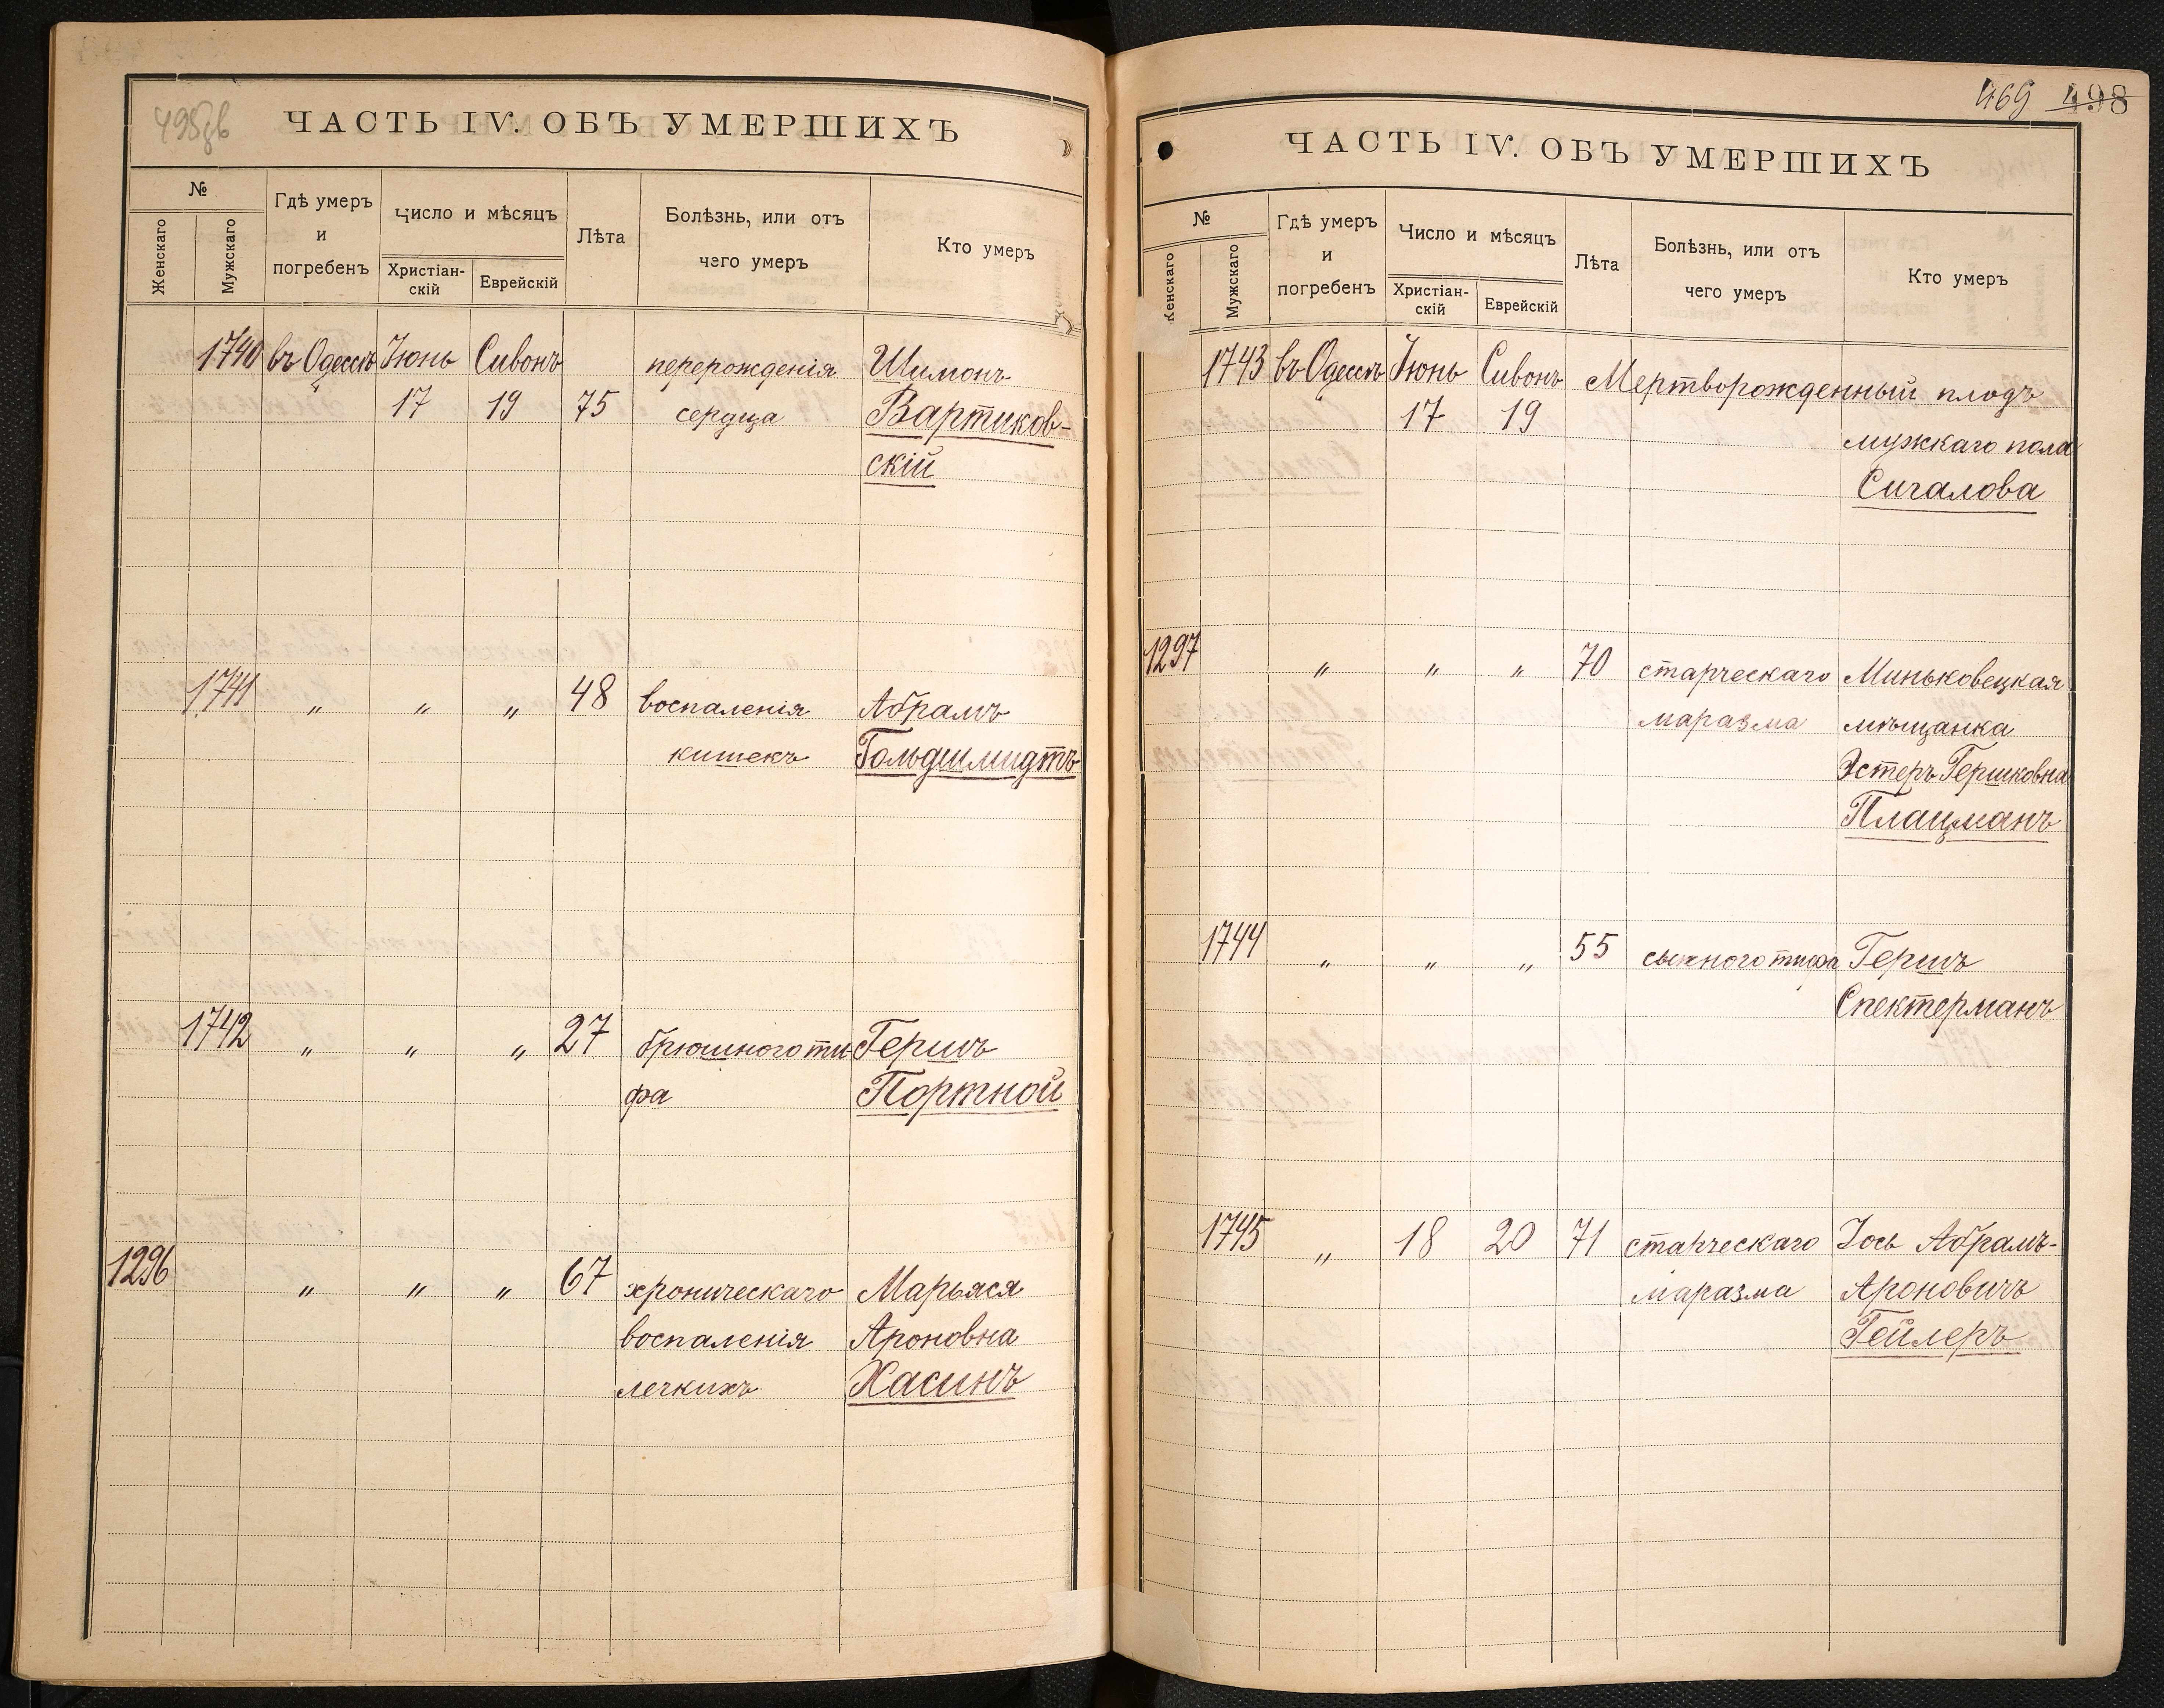 495зв
ЧАСТЬ IV. ОБЪ УМЕРШИХЪ
№
Женскаго
Мужскаго
Гдѣ умеръ
и
погребенъ
Число и мѣсяцъ
Христіан-
скій
Еврейскій
Лѣта
Болѣзнь, или отъ
чего умеръ
Кто умеръ
1740 въ Одессѣ Іюнь Сивонъ перерожденія Шимонъ
17 19 75 сердца Вартиков-
скій
1741 „ „ „ 48 воспаленія Абрамъ
кишекъ Гольдшмидтъ
1742 „ „ „ 27 брюшного ти- Гершъ
фа Портной
1296 „ „ „ 67 хроническаго Марьяся
воспаленія Ароновна
легкихъ Хасинъ
469 498
ЧАСТЬ IV. ОБЪ УМЕРШИХЪ
№
Женскаго
Мужскаго
Гдѣ умеръ
и
погребенъ
Число и мѣсяцъ
Христіан-
скій
Еврейскій
Лѣта
Болѣзнь, или отъ
чего умеръ
Кто умеръ
1743 въ Одессѣ Іюнь Сивонъ Мертворожденный плодъ
17 19 мужкаго пола
Сигалова
1297 „ „ „ 70 старческаго Миньковецкая
маразма мѣщанка
Эстеръ Гершковна
Плацманъ
1744 „ „ „ 55 сыпного тифа Гершъ
Спектерманъ
1745 „ 18 20 71 старческаго Іось Абрамъ-
маразма Ароновичъ
Гейлеръ